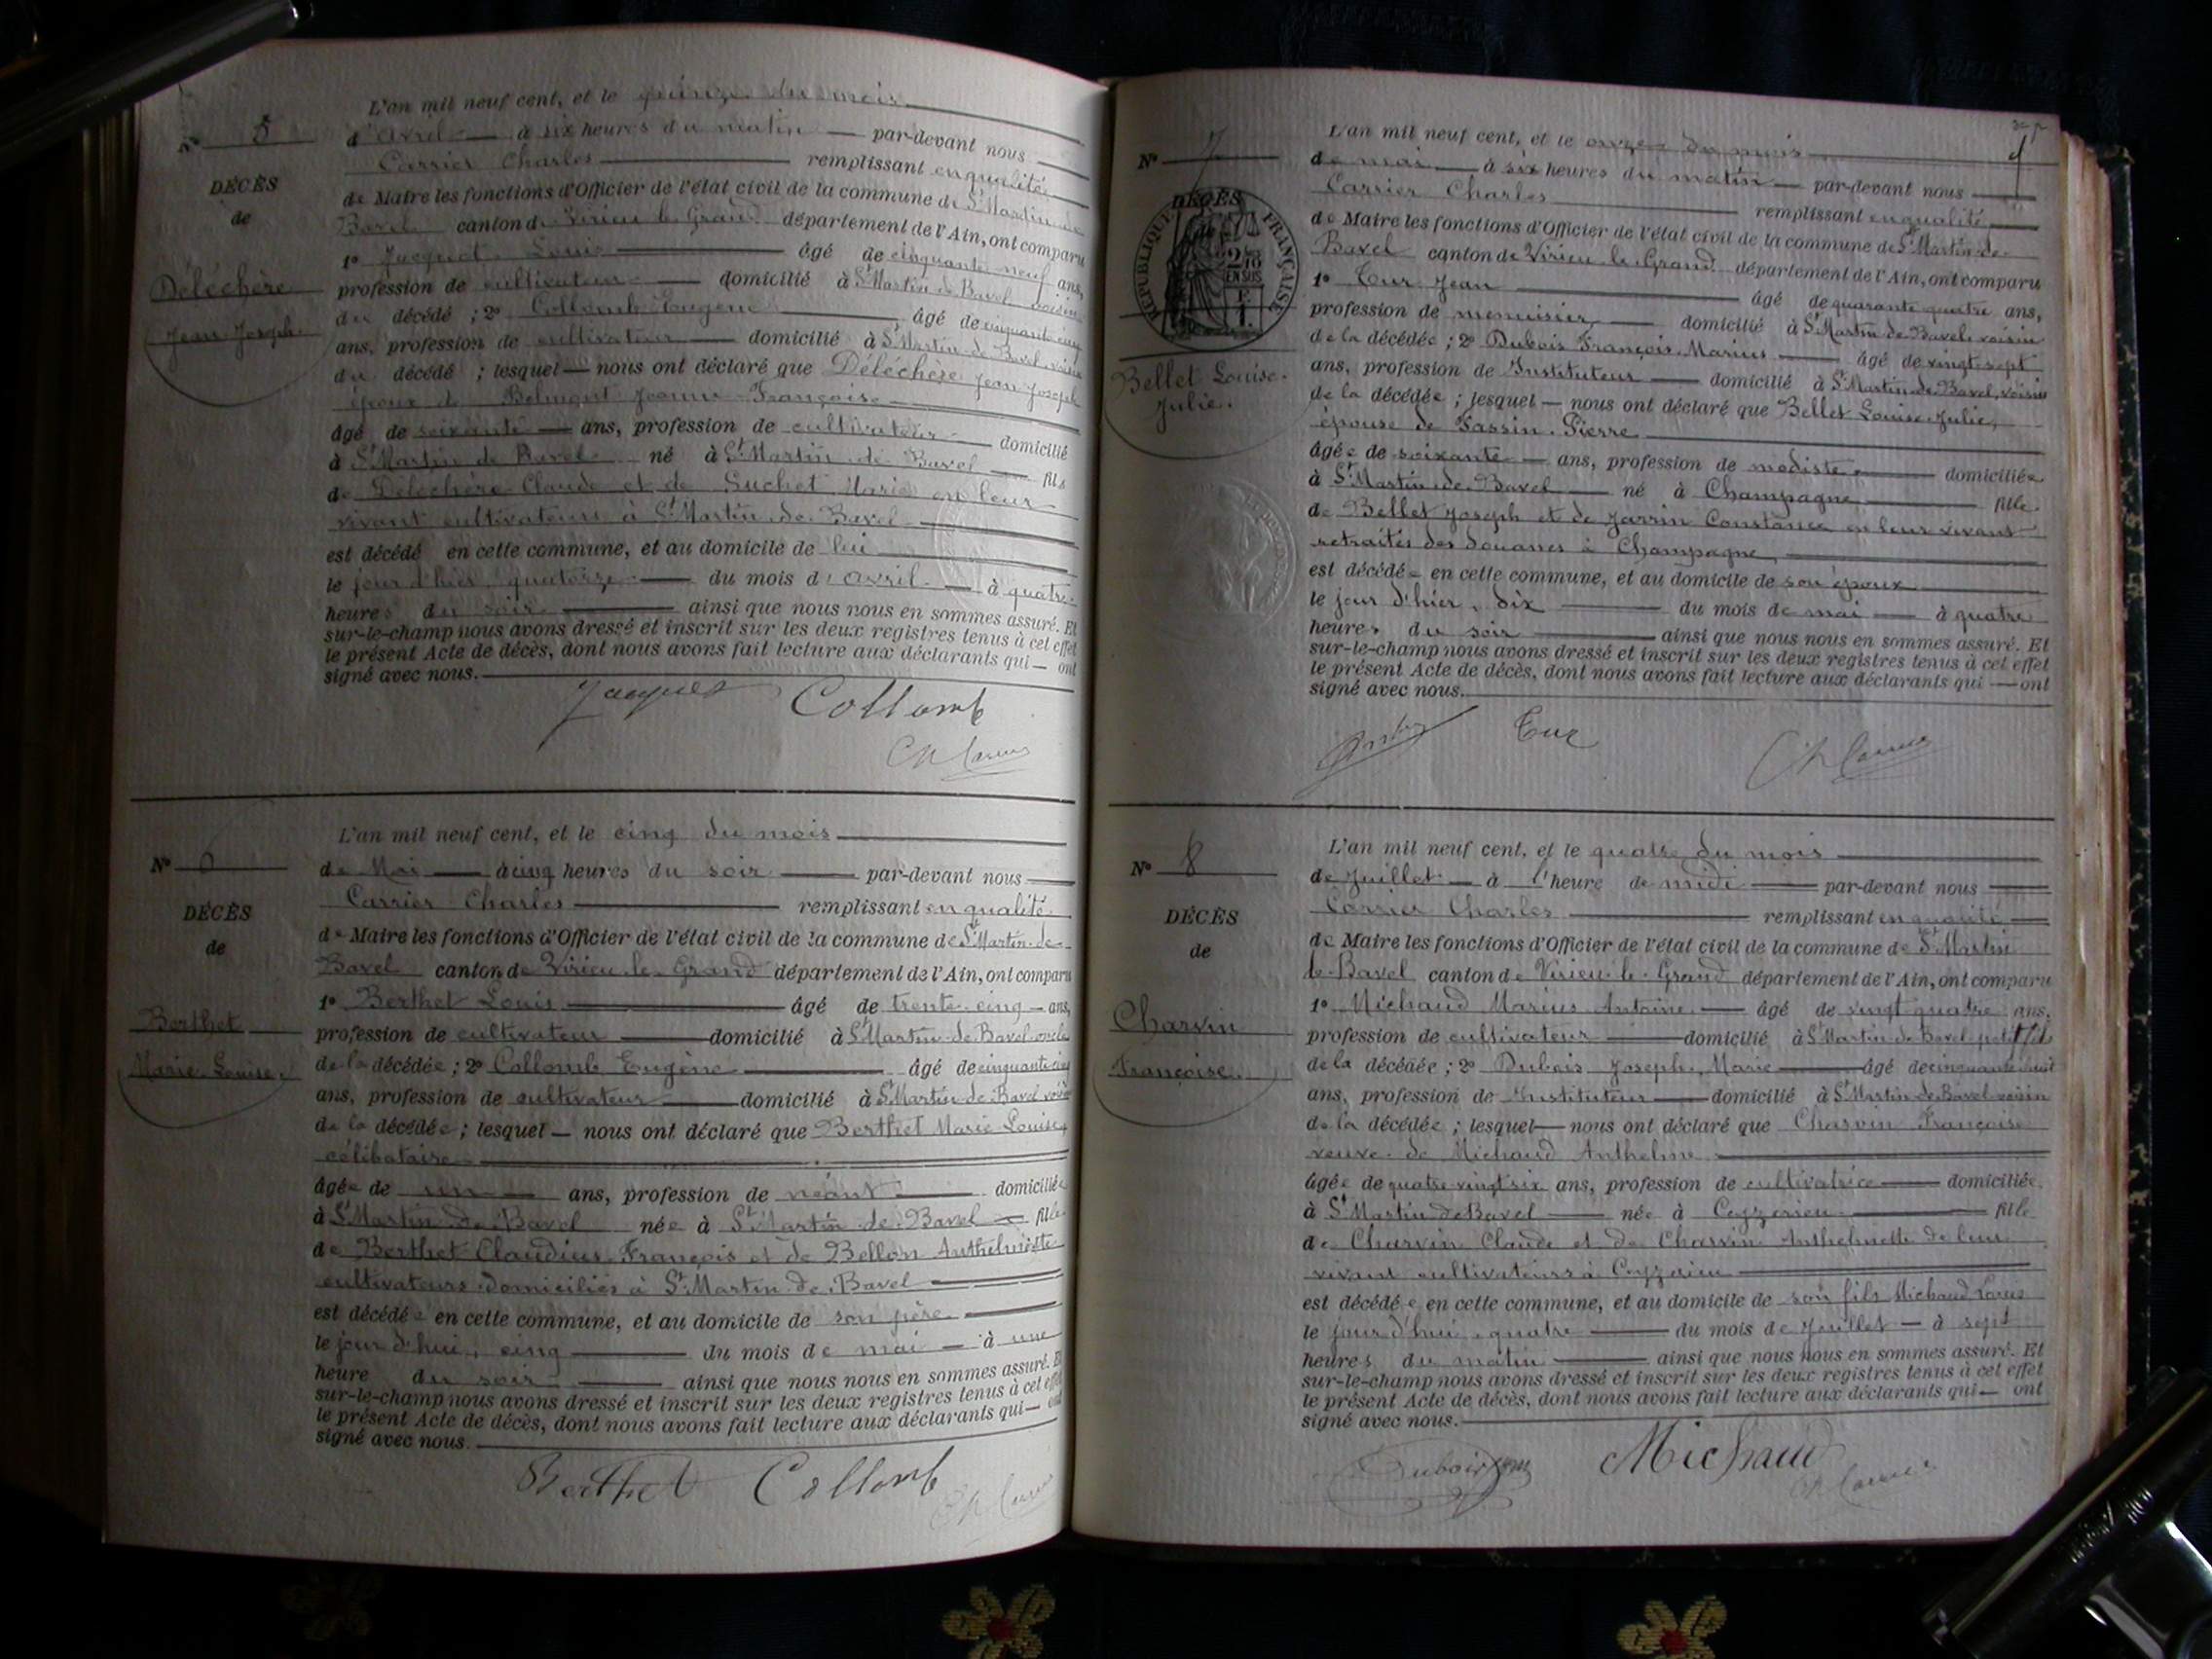 L'an mil neuf cent, et le quinze du mois
N° 5
d'avril à six heures du matin par-devant nous
Carrier Charles remplissant en qualité
DÉCÈS
de Maire les fonctions d'Officier de l'état civil de la commune de St Martin de
de
Bavel canton de Virieu le Grand département de l'Ain, ont comparu
1° Jacquet Louis âgé de cinquante neuf ans,
Déléchère
profession de cultivateur domicilié à St Martin de Bavel voisin
du décédé ; 2° Collomb Eugène âgé de cinquante cinq
Jean Joseph
ans, profession de cultivateur domicilié à St Martin de Bavel voisin
du décédé ; lesquel nous ont déclaré que Déléchère Jean Joseph
époux de Belmont Jeanne Françoise
âgé de soixante ans, profession de cultivateur domicilié
à St Martin de Bavel né à St Martin de Bavel fils
de Déléchère Claude et de Suchet Marie en leur
vivant cultivateurs à St Martin de Bavel
est décédé en cette commune, et au domicile de lui
le jour d'hier quatorze du mois d'avril à quatre
heures du soir ainsi que nous nous en sommes assuré. Et
sur-le-champ nous avons dressé et inscrit sur les deux registres tenus à cet effet
le présent Acte de décès, dont nous avons fait lecture aux déclarants qui ont
signé avec nous.
Jacquet Collomb
Ch Carrier
L'an mil neuf cent, et le cinq du mois
N° 6
de Mai à cinq heures du soir par-devant nous
Carrier Charles remplissant en qualité
DÉCÈS
de Maire les fonctions d'Officier de l'état civil de la commune de St Martin de
de
Bavel canton de Virieu le Grand département de l'Ain, ont comparu
1° Berthet Louis âgé de trente cinq ans,
Berthet
profession de cultivateur domicilié à St Martin de Bavel oncle
de la décédée ; 2° Collomb Eugène âgé de cinquante cinq
Marie Louise
ans, profession de cultivateur domicilié à St Martin de Bavel voisin
de la décédée ; lesquel nous ont déclaré que Berthet Marie Louise,
célibataire
âgée de un ans, profession de néant domiciliée
à St Martin de Bavel née à St Martin de Bavel fille
de Berthet Claudius François et de Bellon Anthelmette
cultivateurs domiciliés à St Martin de Bavel
est décédée en cette commune, et au domicile de son père
le jour d'hui, cinq du mois de mai à une
heure du soir ainsi que nous nous en sommes assuré. Et
sur-le-champ nous avons dressé et inscrit sur les deux registres tenus à cet effet
le présent Acte de décès, dont nous avons fait lecture aux déclarants qui ont
signé avec nous.
Berthet Collomb
Ch Carrier
L'an mil neuf cent, et le onze du mois
N° 7
de mai à six heures du matin par-devant nous
Carrier Charles remplissant en qualité
DÉCÈS
RÉPUBLIQUE FRANÇAISE
2/10 EN SUS
de Maire les fonctions d'Officier de l'état civil de la commune de St Martin de
Bavel canton de Virieu le Grand département de l'Ain, ont comparu
1° Tur Jean âgé de quarante quatre ans,
profession de menuisier domicilié à St Martin de Bavel, voisin
de la décédée ; 2° Dubois François Marius âgé de vingt sept
Bellet Louise
Julie.
ans, profession de Instituteur domicilié à St Martin de Bavel, voisin
de la décédée ; lesquel nous ont déclaré que Bellet Louise Julie,
épouse de Fassin Pierre
âgée de soixante ans, profession de modiste domiciliée
à St Martin de Bavel né à Champagne fille
de Bellet Joseph et de Jarrin Constance en leur vivant
retraités des douanes à Champagne,
est décédée en cette commune, et au domicile de son époux
le jour d'hier, dix du mois de mai à quatre
heures du soir ainsi que nous nous en sommes assuré. Et
sur-le-champ nous avons dressé et inscrit sur les deux registres tenus à cet effet
le présent Acte de décès, dont nous avons fait lecture aux déclarants qui ont
signé avec nous.
Tur
Ch Carrier
L'an mil neuf cent, et le quatre du mois
N° 8
de Juillet à l'heure de midi par-devant nous
Carrier Charles remplissant en qualité
DÉCÈS
de Maire les fonctions d'Officier de l'état civil de la commune de St Martin
de
de Bavel canton de Virieu le Grand département de l'Ain, ont comparu
1° Michaud Marius Antoine âgé de vingt quatre ans,
Charvin
profession de cultivateur domicilié à St Martin de Bavel petit fils
Françoise
de la décédée ; 2° Dubois Joseph Marie âgé de cinquante huit
ans, profession de Instituteur domicilié à St Martin de Bavel voisin
de la décédée ; lesquel nous ont déclaré que Charvin Françoise
veuve de Michaud Anthelme
âgée de quatre vingt six ans, profession de cultivatrice domiciliée
à St Martin de Bavel née à Ceyzerieu fille
de Charvin Claude et de Charvin Anthelmette de leur
vivant cultivateurs à Ceyzerieu
est décédée en cette commune, et au domicile de son fils Michaud Louis
le jour d'hui, quatre du mois de Juillet à sept
heures du matin ainsi que nous nous en sommes assuré. Et
sur-le-champ nous avons dressé et inscrit sur les deux registres tenus à cet effet
le présent Acte de décès, dont nous avons fait lecture aux déclarants qui ont
signé avec nous.
Dubois Michaud
Ch Carrier